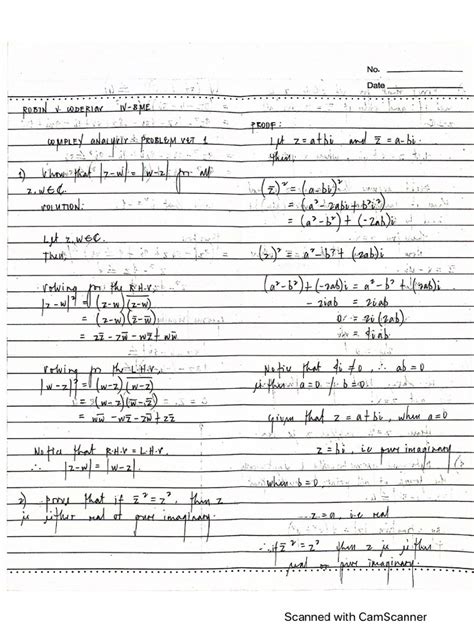 No.
Date
ROBIN V. CODERIAS IV-BME
COMPLEX ANALYSIS PROBLEM SET 1
1) Show that |z-w| = |w-z| for all
z,w∈ℂ.
SOLUTION:
Let z,w∈ℂ.
Then,
Solving for the R.H.S,
|z-w|² = (z-w)(z-w)
= (z-w)(z̄-w̄)
= zz̄ - zw̄ - wz̄ + ww̄
Solving for the L.H.S,
|w-z|² = (w-z)(w-z)
= (w-z)(w̄-z̄)
= ww̄ - wz̄ - zw̄ + zz̄
Notice that R.H.S = L.H.S.
∴ |z-w| = |w-z|
2) Prove that if z̄² = z², then z
is either real or pure imaginary.
PROOF:
Let z = a+bi and z̄ = a-bi.
Then,
(z̄)² = (a-bi)²
= (a² - 2abi + b²i²)
= (a²-b²) + (-2ab)i
(z)² = a² - b² + (2ab)i
(a²-b²) + (-2ab)i = a² - b² + (2ab)i
-2iab = 2iab
0 = 2i(2ab)
= 4iab
Notice that 4i ≠ 0, ∴ ab = 0
either a = 0 / b = 0.
Given that z = a+bi, when a = 0
z = bi, i.e pure imaginary
when b = 0,
z = a, i.e real
∴ if z̄² = z² then z is either
real or pure imaginary.
Scanned with CamScanner